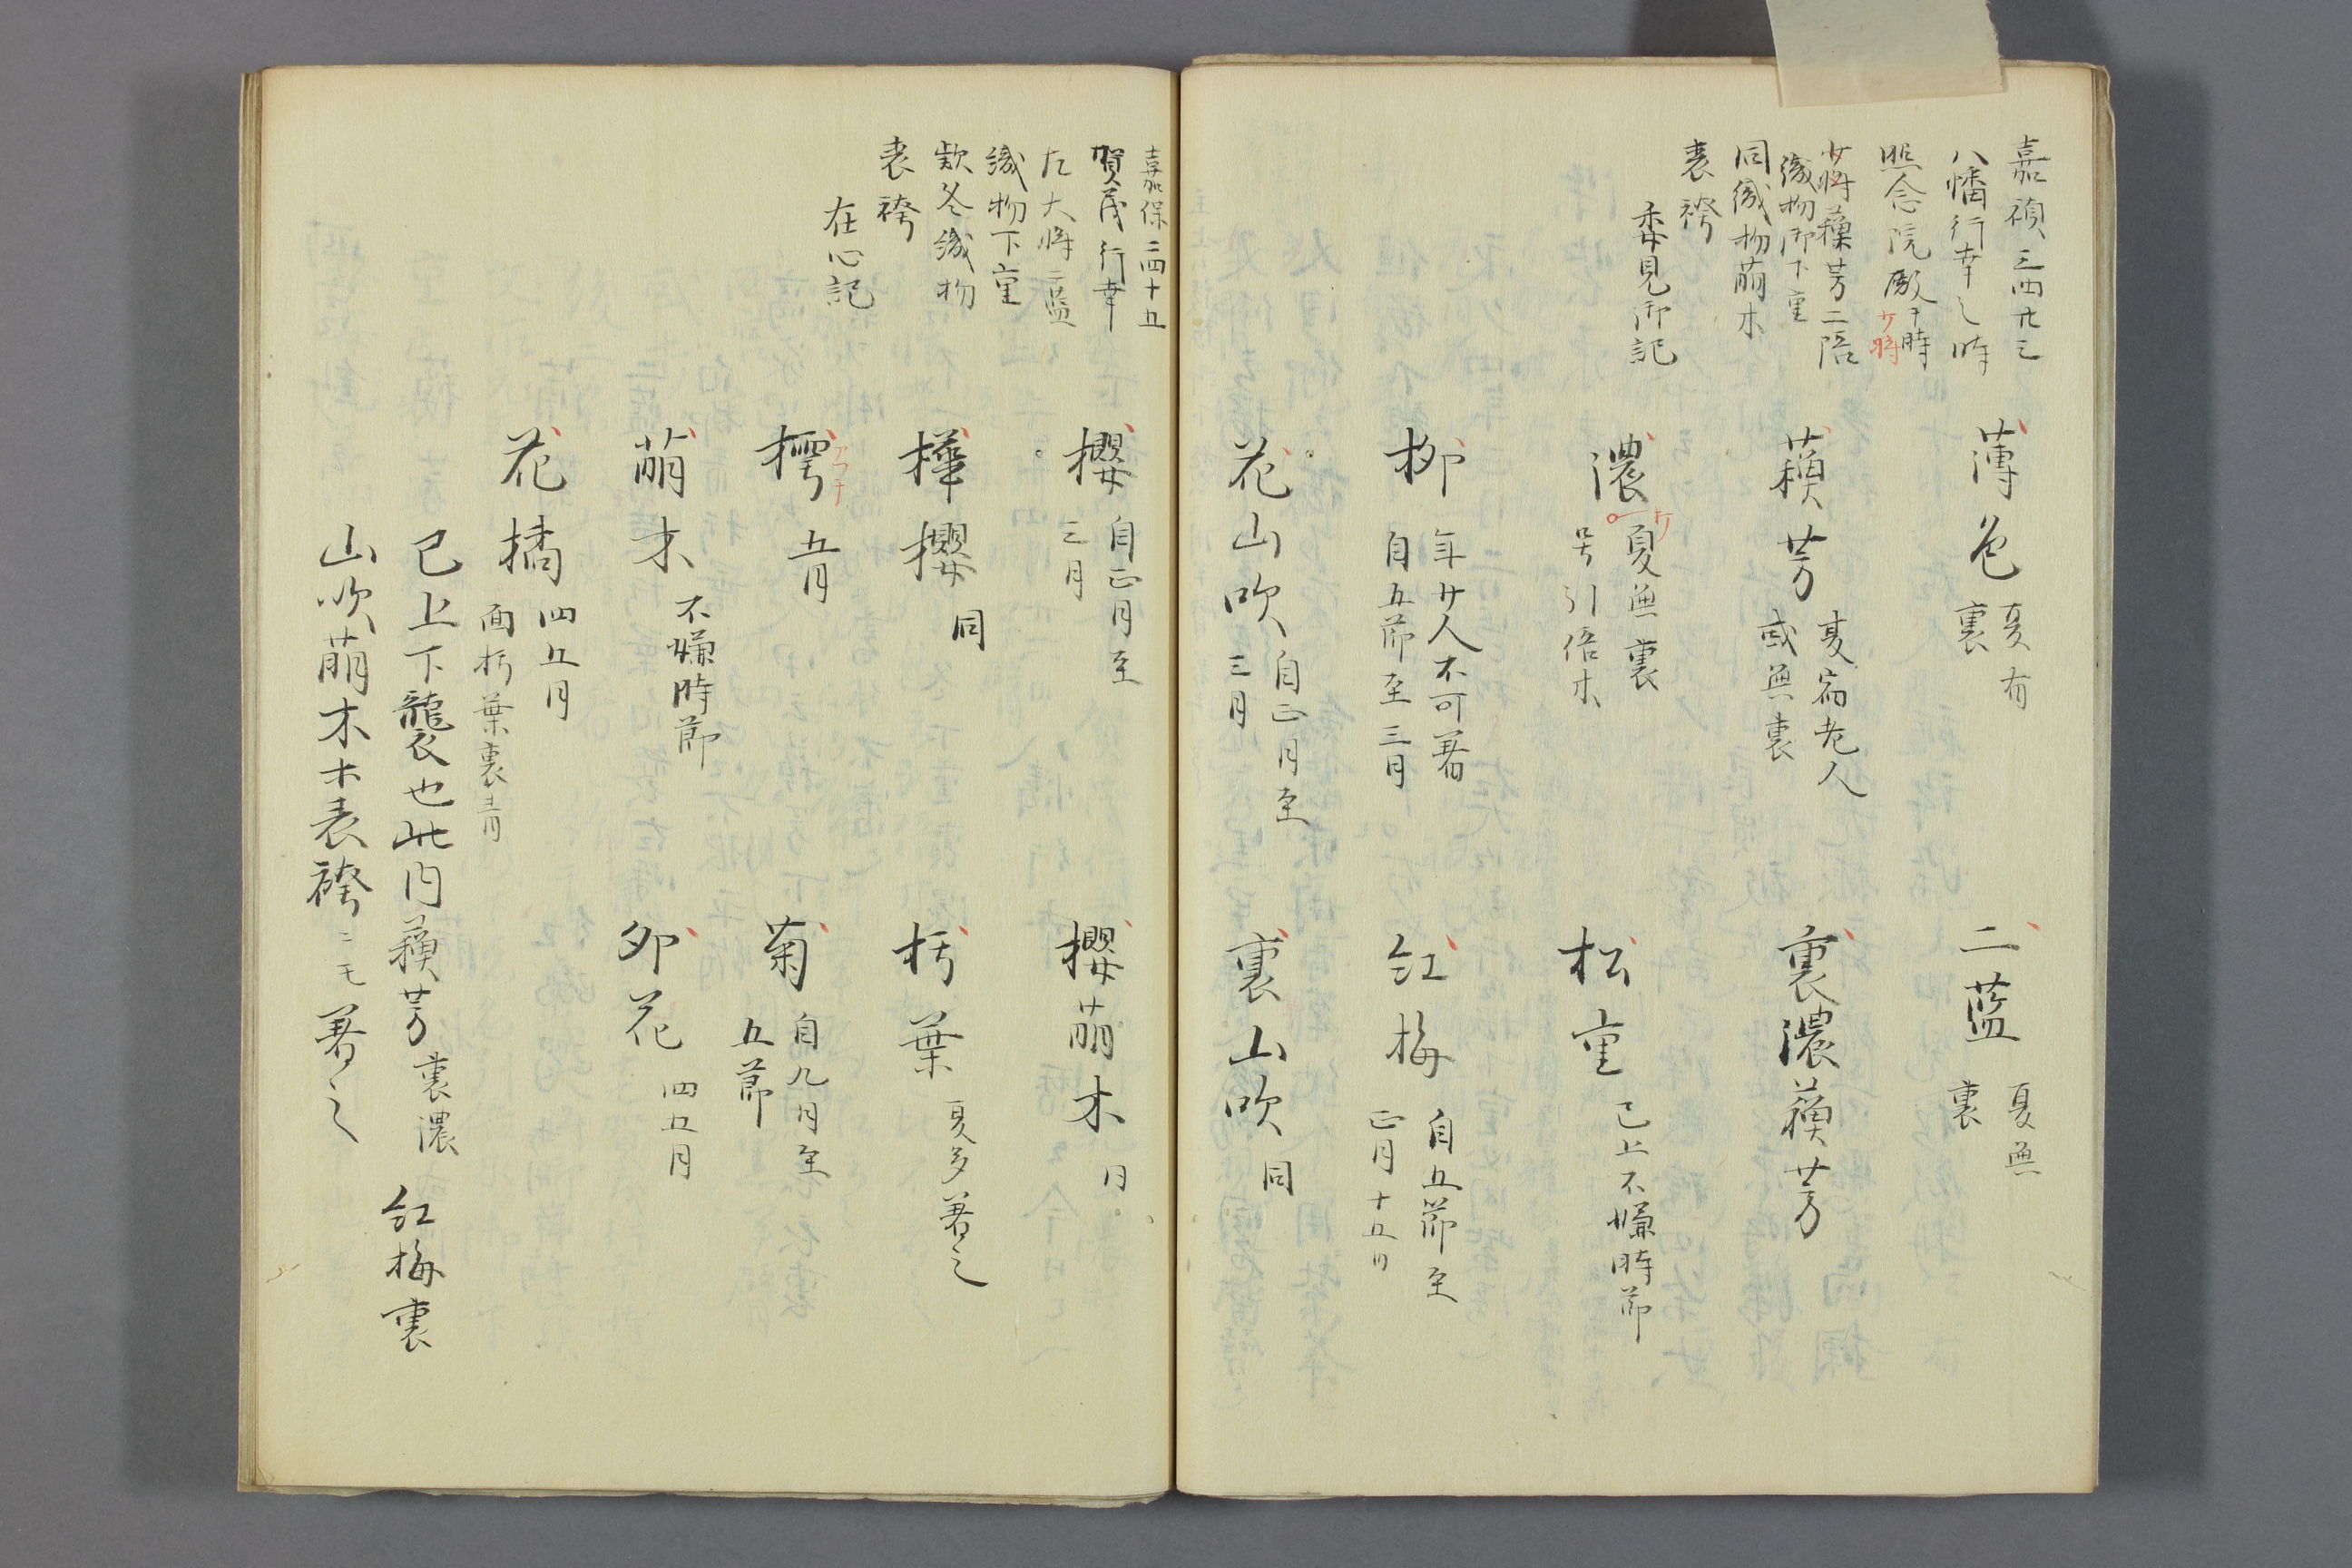 嘉禎三四廿三
八幡行幸之時
照念院殿于時
少将
少将蘓芳二陪
織物御下重
同織物萠木
表袴
委見御記
薄色
夏有
裏
二藍
夏無
裏
蘓芳
夏宿老人
或無裏
裏濃蘓芳
濃
夏無裏
号引倍木
松重
已上不嫌時節
柳
年廿人不可著
自五節至三月
紅梅
自五節至
正月十五日
花山吹
自正月至
三月
裏山吹
同
嘉保二四十五
賀茂行幸
左大将二藍
織物下重
欵冬織物
表袴
在心記
櫻
自正月至
三月
櫻萠木
樺櫻
同
朽葉
夏多著之
樗
アフチ
五月
菊
自九月至
五節
萠木
不嫌時節
卯花
四五月
花橘
四五月
面朽葉裏青
已上下襲也此内蘓芳裏濃 紅梅裏
山吹萠木木表袴ニモ著之